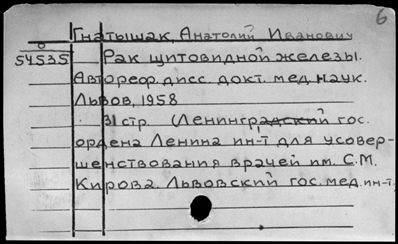 6
Гнатышак, Анатолий Иванович
54535 Рак щитовидной железы.
Автореф. дисс. докт. мед. наук.
Львов, 1958
31 стр. (Ленинградский гос.
ордена Ленина ин-т для усовер-
шенствования врачей им. С.М.
Кирова. Львовский гос. мед. ин-т.